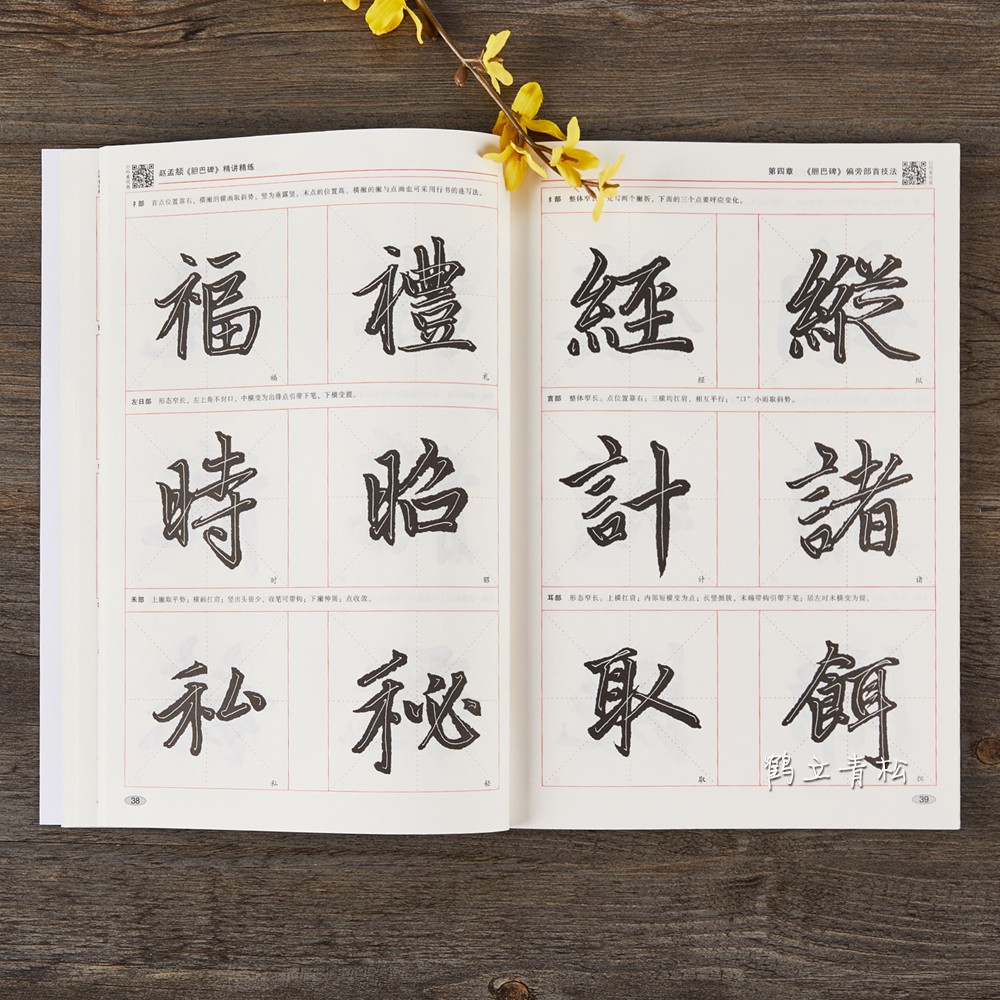 赵孟頫《胆巴碑》精讲精练
礻部 首点位置靠右，横撇的横画取斜势，竖为垂露竖，末点的位置高。横撇的撇与点画也可采用行书的连写法。
福 禮
福 礼
左日部 形态窄长，左上角不封口，中横变为出锋点引带下笔，下横变提。
時 昭
时 昭
禾部 上撇取平势；横画扛肩；竖出头很少，收笔可带钩；下撇伸展；点收敛。
私 秘
私 秘
38
第四章 《胆巴碑》偏旁部首技法
纟部 整体窄长，先写两个撇折，下面的三个点要呼应变化。
經 縱
经 纵
言部 整体窄长，点位置靠右；三横均扛肩，相互平行；“口”小而取斜势。
計 諸
计 诸
耳部 形态窄长，上横扛肩；内部短横变为点；长竖挺拔，末端带钩引带下笔；居左时末横变为提。
取 餌
取 饵
39
鹤立青松